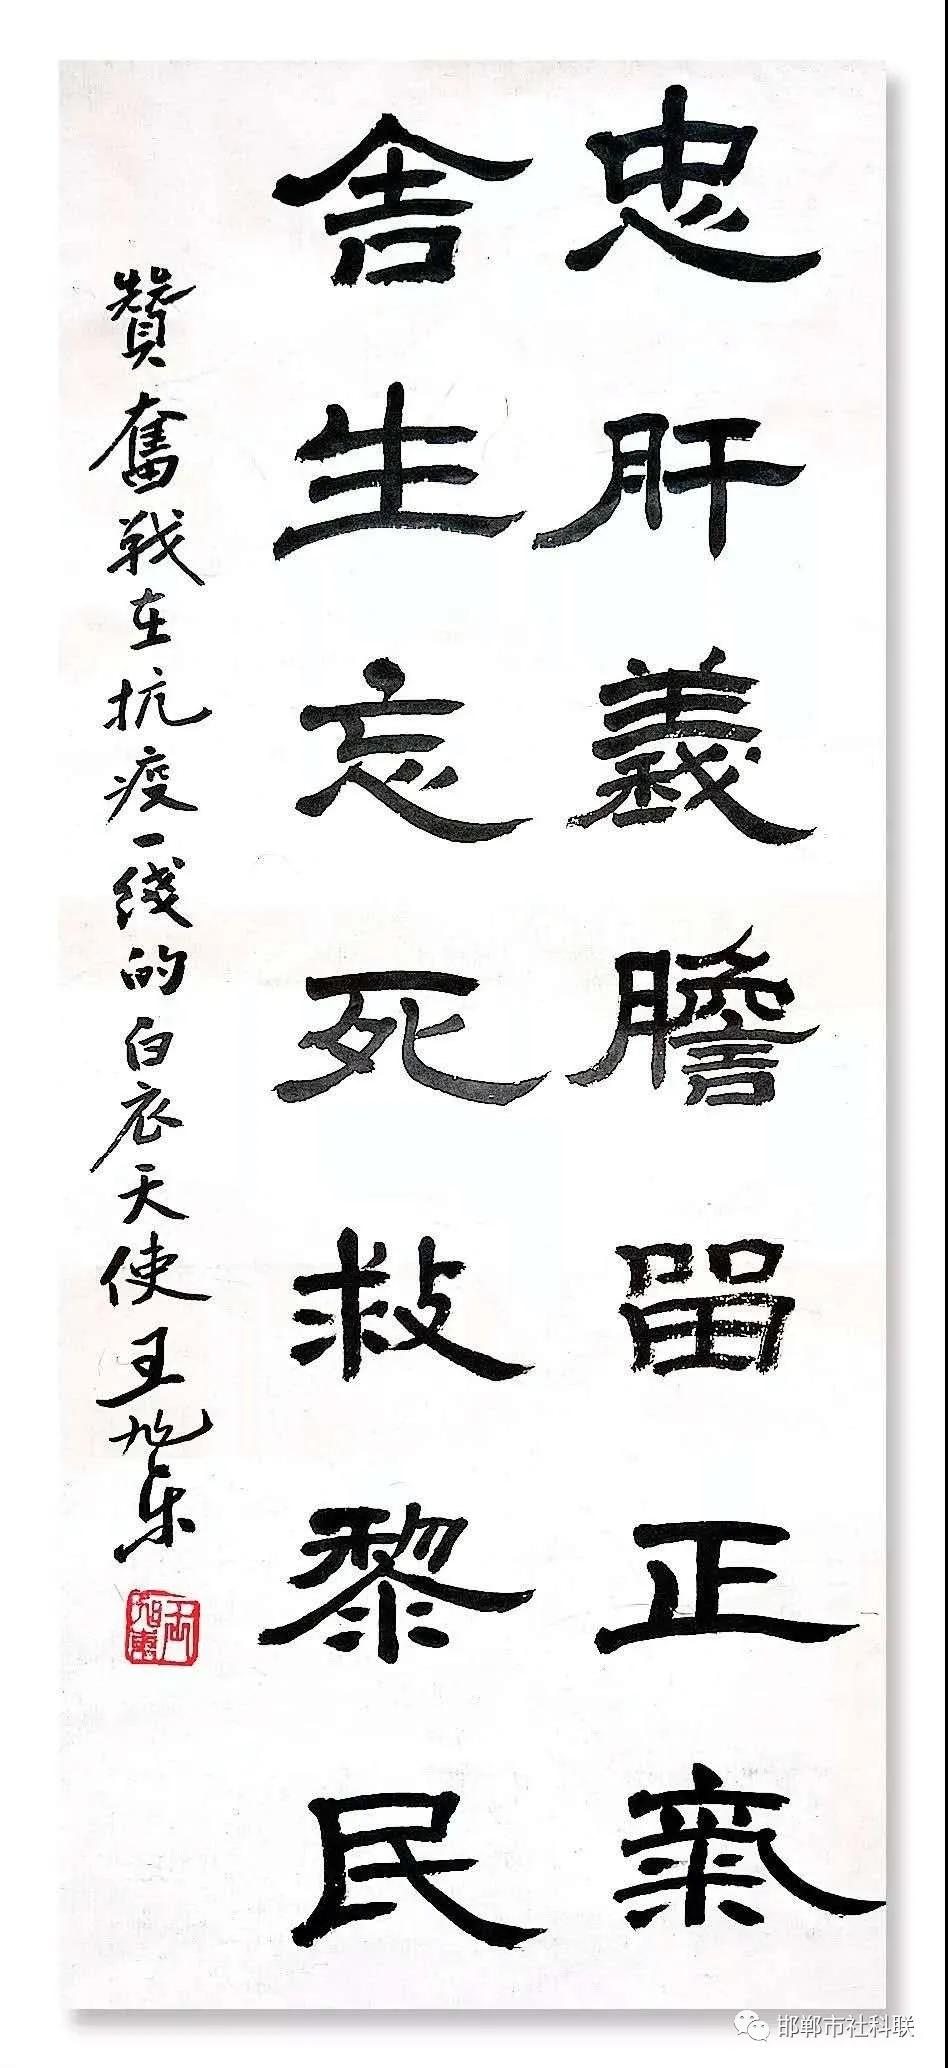 忠肝義膽留正氣
舍生忘死救黎民
贊奮戰在抗疫一线的白衣天使王旭东
邯郸市社科联